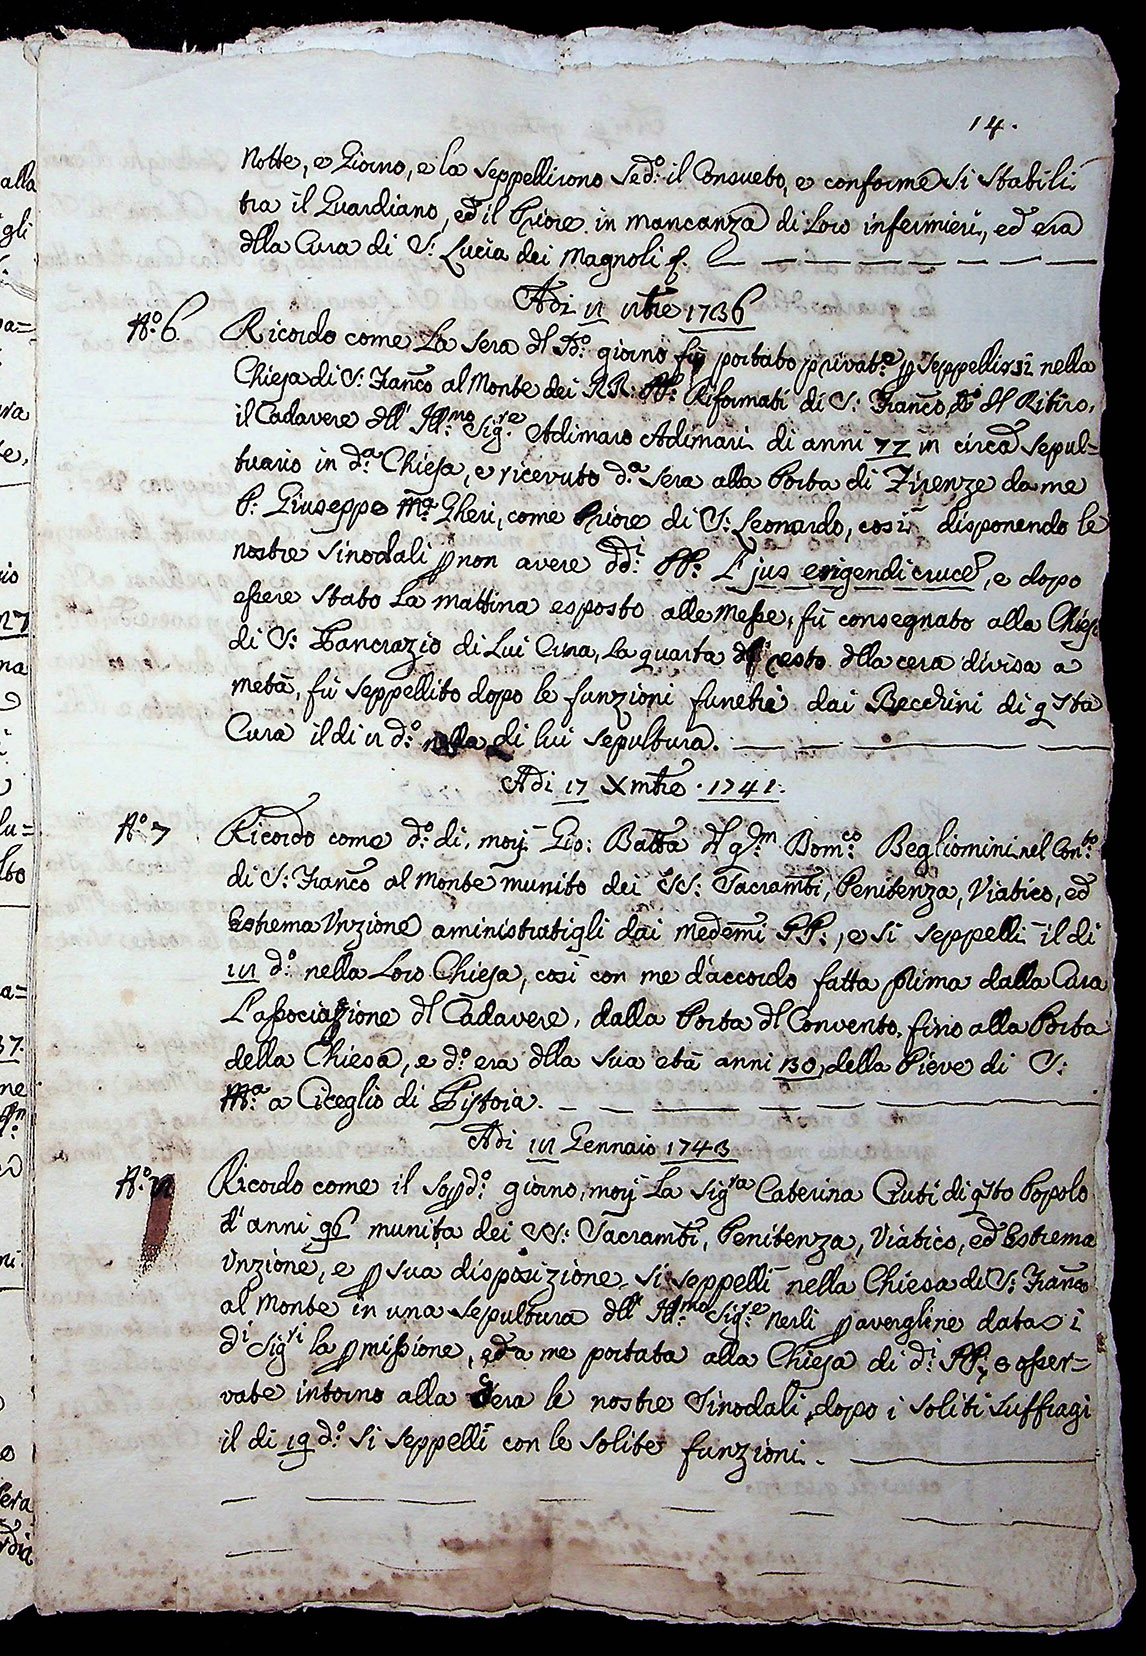 14.
Notte, e Giorno, e la seppellirono Sed.º il Consueto, e conforme si stabilì
tra il Guardiano, ed il Priore in mancanza di Loro infermieri, ed era
dlla Cura di S: Lucia dei Magnoli
Adi 1736
Nº 6. Ricordo come La Sera dl dº giorno fù portato privat.e p seppellirsi nella
Chiesa di S: Franco al Monte dei RR: PP: Riformati di S: Franco, dº dl Ritiro,
il Cadavere dll' Ill.mo Sig.re Adimaro Adimari di anni 77 in circa Sepul=
tuario in d.a Chiesa, e ricevuto d.a Sera alla Porta di Firenze da me
P: Giuseppe M.a Gheri, come Priore di S: Leonardo, così disponendo le
nostre Sinodali p non avere d.di PP: L'jus erigendi cruce, e dopo
essere stato La mattina esposto alle Messe, fù consegnato alla Chiesa
di S: Pancrazio di Lui Cura, La quarta resto dlla cera divisa a
metà, fù seppellito dopo le funzioni funebri dai Becchini di qsta
Cura il di dº: nella di lui sepultura.
Adi 17 Xmbre 1741:
Nº 7 Ricordo come dº: di, morì Gio: Batta dl q.m Dom.co Begliomini nel Con.to
di S: Franco al Monte munito dei SS: Sacramti, Penitenza, Viatico, ed
Estrema Unzione aministratigli dai medemi PP:, e si seppellì il di
dº: nella Loro Chiesa, così con me d'accordo fatta prima dalla Cura
L'associazione dl Cadavere, dalla Porta dl Convento, fino alla Porta
della Chiesa, e dº: era dlla sua età anni 130, della Pieve di S:
M.a a Ciceglio di Pistoia.
Adi Gennaio 1743
Nº: Ricordo come il Sopdº: giorno, morì La Sig.ra Caterina Ciuti di qsto Popolo
d'anni 96 munita dei SS: Sacramti, Penitenza, Viatico, ed Estrema
Unzione, e p sua disposizione si seppellì nella Chiesa di S: Franco
al Monte in una Sepultura dll' Ill.mo Sig.re Nerli p avergline data i
d.i Sig.ri la pmissione, ed a me portata alla Chiesa di d.i PP: e osser=
vate intorno alla Cera le nostre Sinodali, dopo i soliti suffragi
il di 19 dº: si seppellì con le solite funzioni.